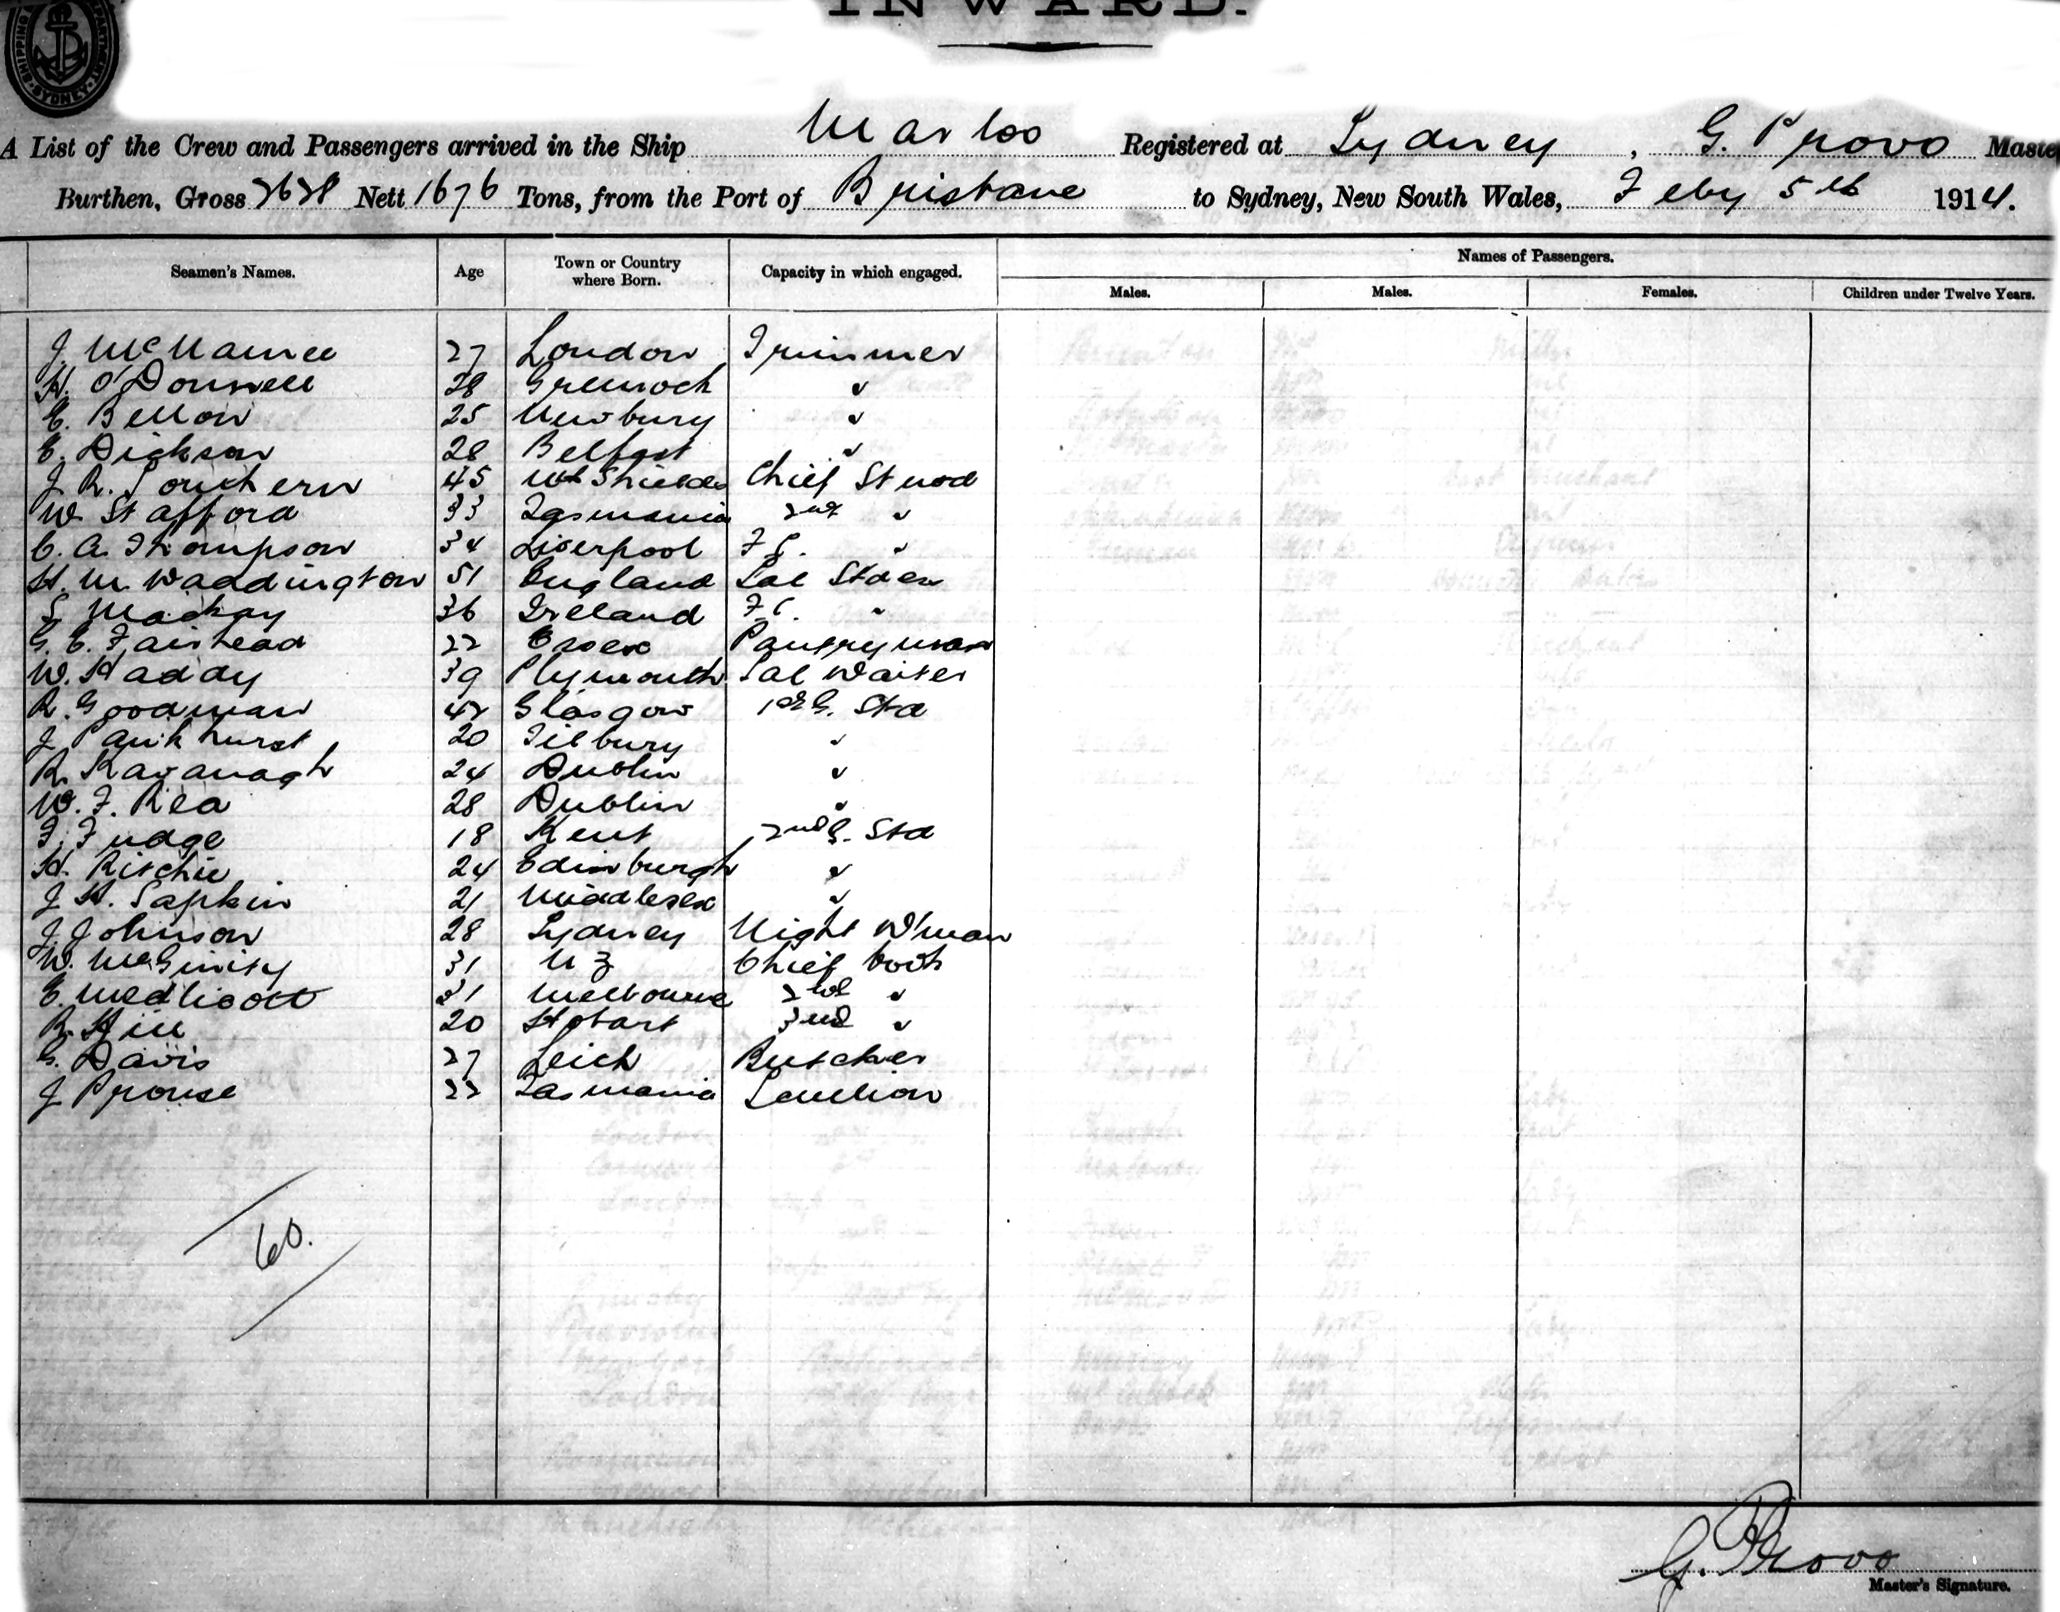 INWARD.
SHIPPING DEPARTMENT SYDNEY
A List of the Crew and Passengers arrived in the Ship Marloo Registered at Sydney, G. Provo Master
Burthen, Gross 2628 Nett 1676 Tons, from the Port of Brisbane to Sydney, New South Wales, Feby 5th 1914.
Names of Passengers.
Seamen's Names. Age Town or Country where Born. Capacity in which engaged. Males. Males. Females. Children under Twelve Years.
J McNamee 27 London Trimmer
H. O'Donnell 28 Greenock "
E. Bellon 25 Newbury "
E. Dickson 28 Belfast "
J R. Southern 45 Nth Shields Chief Stwod
W Stafford 33 Tasmania 2nd "
C. A. Thompson 34 Liverpool F C. "
H. M Waddington 51 England Sal Stden
S Mackay 36 Ireland F C. "
G. E. Fairhead 22 Essex Pantryman
W. Haddy 39 Plymouth Sal Waiter
R. Goodman 42 Glasgow 1st G. Std
J Pankhurst 20 Tilbury "
R. Kavanagh 24 Dublin "
W. F. Rea 28 Dublin "
F. Fudge 18 Kent 2nd G. Std
H. Ritchie 24 Edinburgh "
J H. Sapkin 21 Middlesex "
J Johnson 28 Sydney Night W'man
W. McGinity 31 N Z Chief Cook
E. Medlicott 21 Melbourne 2nd "
R. Hill 20 Hobart 3rd "
G. Davis 27 Leith Butcher
J Prouse 22 Tasmania Scullion
60.
G. Provo
Master's Signature.